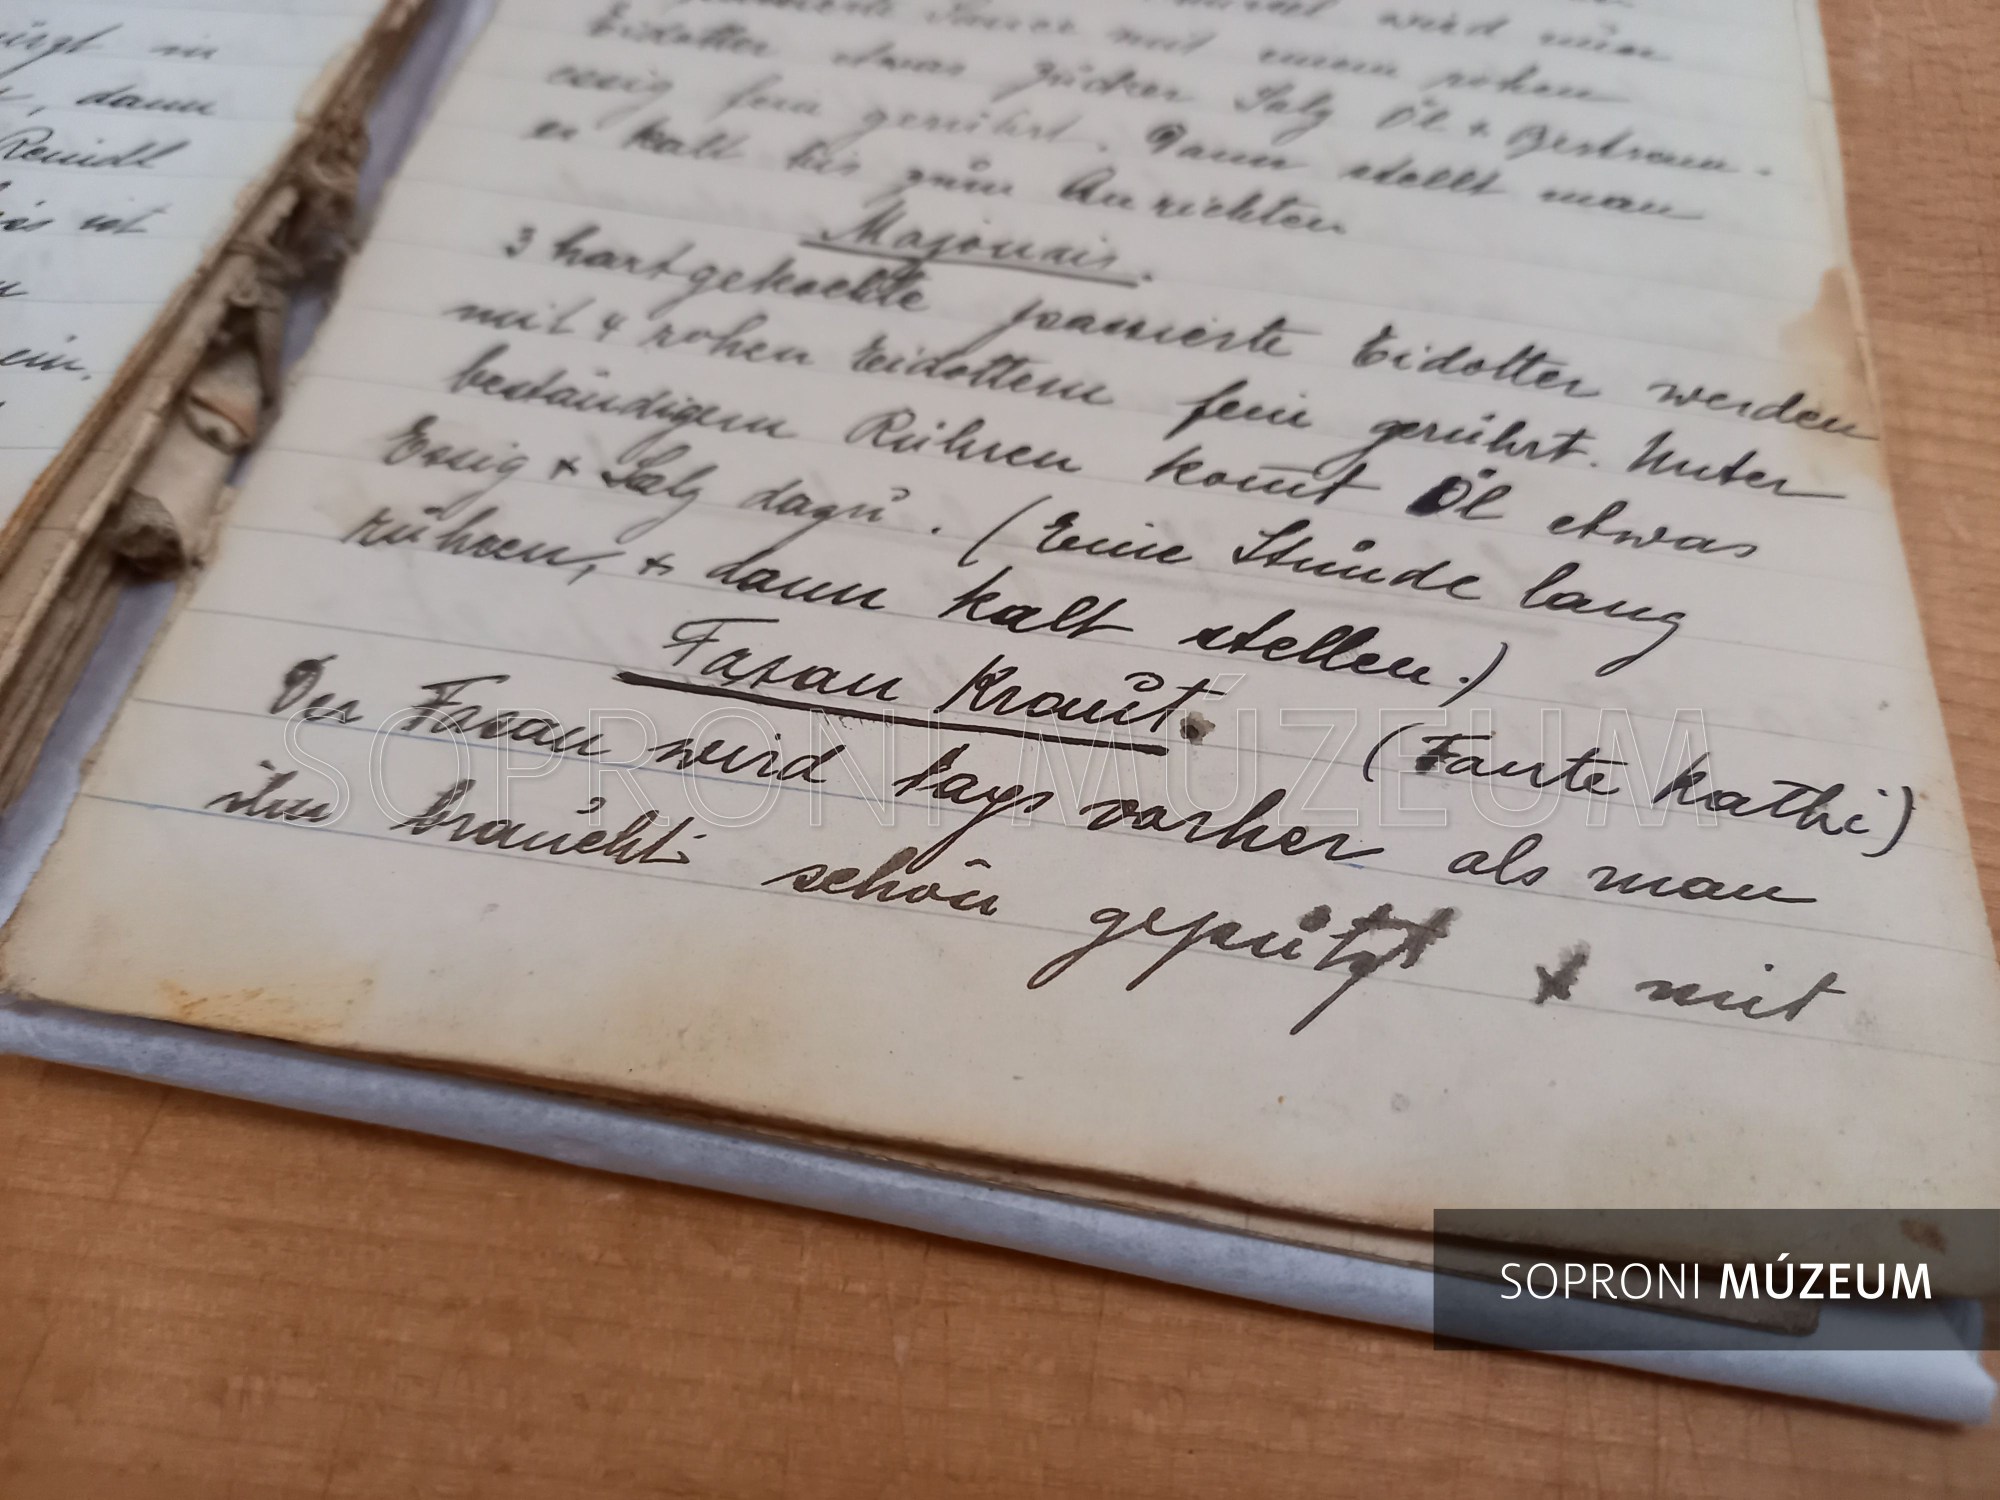 in
dann
Reindl
ist
ein.
wird
mit rohen
Eidotter etwas Zucker Salz Öl + Bertram-
essig fein gerührt. Dann stellt man
es kalt bis zum Anrichten
Majonais.
3 hartgekochte passierte Eidotter werden
mit 4 rohen Eidottern fein gerührt. Unter
beständigem Rühren kom̄t Öl etwas
Essig + Salz dazu. (Eine Stunde lang
rühren, + dann kalt stellen.)
Fasan Kraut. (Tante Kathi)
Der Fasan wird tags vorher als man
ihn braucht schön geputzt + mit
SOPRONI MÚZEUM
SOPRONI MÚZEUM